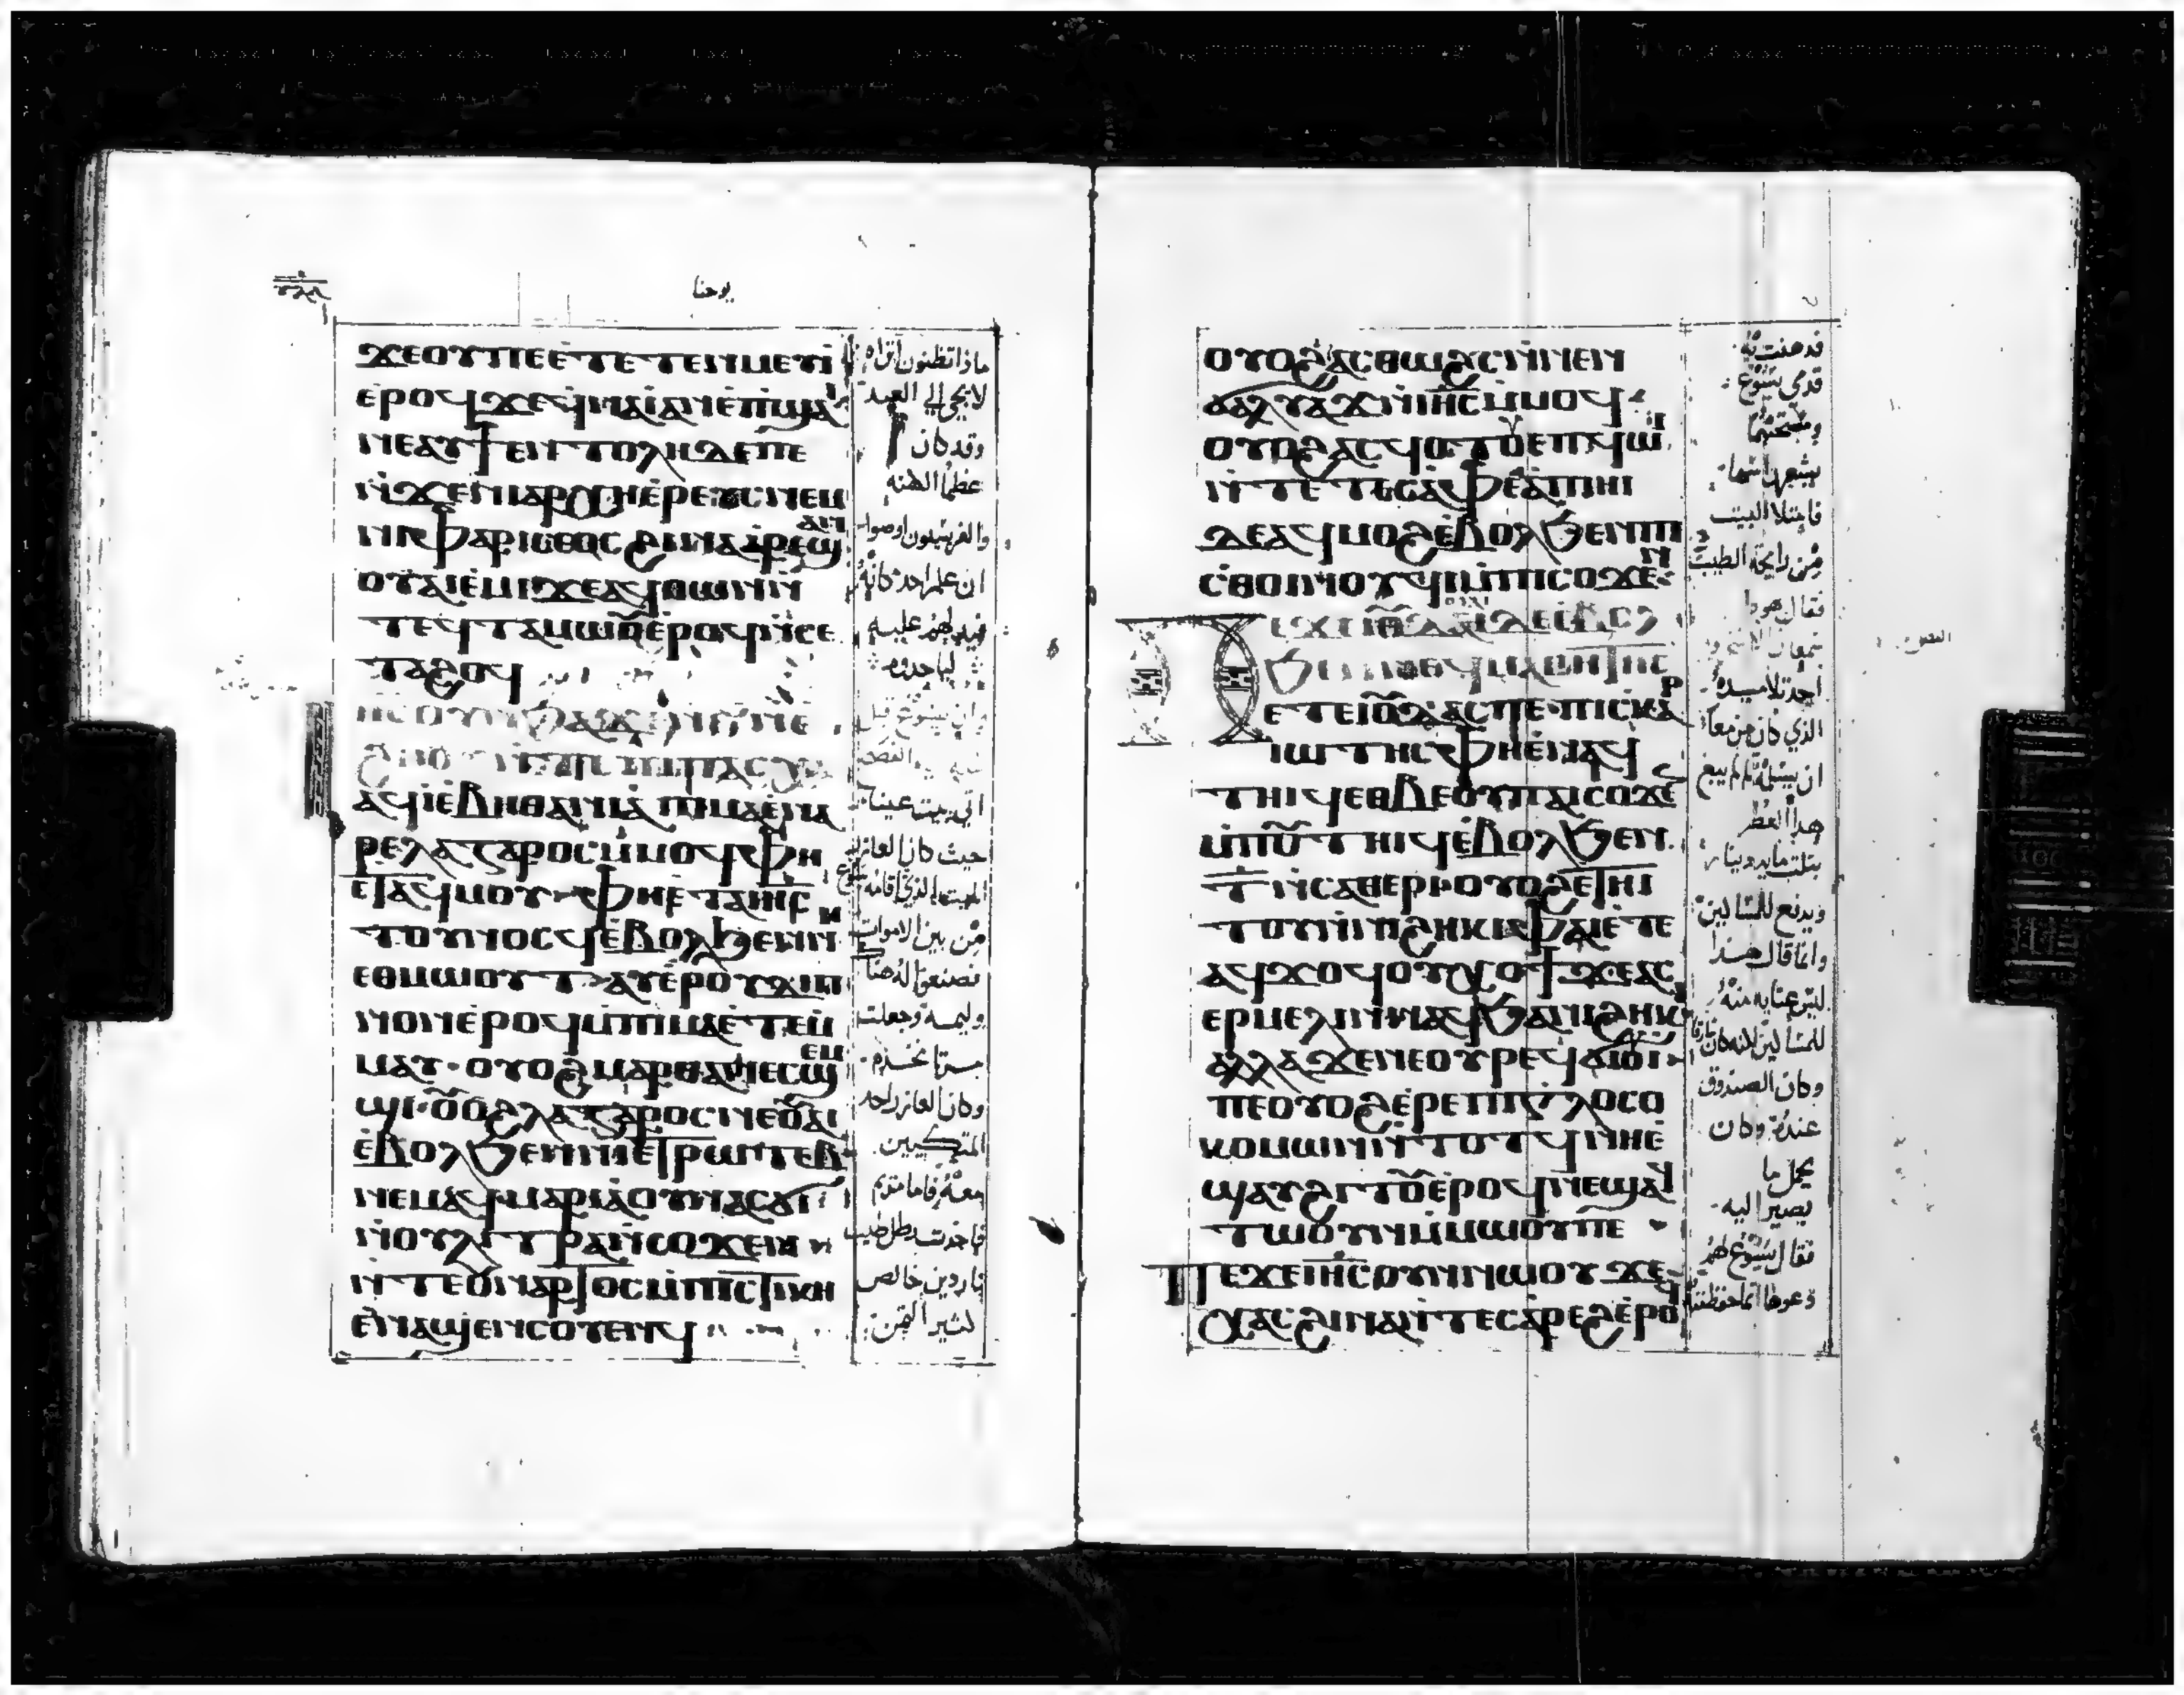 يوحنا
ϫⲉⲟⲩⲡⲉⲉ̀ⲧⲉⲧⲉⲛⲙⲉⲩⲓ̀
ⲉⲣⲟϥϫⲉϥⲛⲁⲓ̀ⲁⲛⲉ̀ⲡϣⲁⲓ
ⲛⲉⲁⲩϯⲉⲛⲧⲟⲗⲏⲇⲉⲡⲉ
ⲛ̀ϫⲉⲛⲓⲁⲣⲭⲏⲉ̀ⲣⲉⲩⲥⲛⲉⲙ
ⲛⲓⲫⲁⲣⲓⲥⲉⲟⲥϩⲓⲛⲁⲁ̀ⲣⲉϣⲁⲛ
ⲟⲩⲁⲓⲉ̀ⲙⲓϫⲉⲁϥⲑⲱⲛⲛ̀
ⲧⲉϥⲧⲁⲙⲱⲟⲩⲉ̀ⲣⲟϥⲛ̀ⲥⲉ
ⲧⲁϩⲟϥ
ⲁϥⲓ̀ⲉ̀ⲃⲏⲑⲁⲛⲓⲁ̀ⲡⲓⲙⲁⲉ̀ⲛⲁ
ⲣⲉⲗⲁⲍⲁⲣⲟⲥⲙ̀ⲙⲟϥⲫⲏ
ⲉⲧⲁϥⲙⲟⲩⲫⲏⲉ̀ⲧⲁⲓⲏⲥ
ⲧⲟⲩⲛⲟⲥϥⲉ̀ⲃⲟⲗϧⲉⲛⲛⲏ
ⲉⲑⲙⲱⲟⲩⲧⲁⲩⲉ̀ⲣⲟⲩⲇⲓⲡ
ⲛⲟⲛⲉ̀ⲣⲟϥⲙ̀ⲡⲓⲙⲁⲉ̀ⲧⲉⲙ
ⲙⲁⲩ·ⲟⲩⲟϩⲙⲁⲣⲑⲁⲛⲉⲥϣⲉⲙ
ϣⲓ·ⲟⲩⲟϩⲗⲁⲍⲁⲣⲟⲥⲛⲉⲟⲩⲁⲓ
ⲉ̀ⲃⲟⲗϧⲉⲛⲛⲏⲉⲧⲣⲱⲧⲉⲃ
ⲛⲉⲙⲁϥⲙⲁⲣⲓⲁⲟⲩⲛⲁⲥϭⲓ
ⲛ̀ⲟⲩⲗⲩⲧⲣⲁⲛ̀ⲥⲟϫⲉⲛ
ⲛ̀ⲧⲉⲟⲩⲛⲁⲣⲇⲟⲥⲙ̀ⲡⲓⲥⲧⲓⲕⲏ
ⲉ̀ⲛⲁϣⲉⲛⲥⲟⲩⲉⲛϥ
ماذا تظنون اتراه
لا يجي الي العيد
وقد كان
عظما الكهنه
والفريسيون اوصوا
ان علم احد مكانه
فيدلهم عليه
لياخدوه
اتي بيت عنيا
حيث كان العازر
الميت الذي اقامه يسوع
من بين الاموات
فصنعوا له هناك
وليمه وجعلت
مرتا تخدم
وكان العازر احد
المتكيين
معه فاما مريم
فاخدت رطل طيب
ناردين خالص
كثير الثمن
ⲟⲩⲟϩⲁⲥⲑⲱϩⲥⲛ̀ⲛⲉⲛ
ϭⲁⲗⲁⲩϫⲛ̀ⲓⲏⲥⲙ̀ⲙⲟϥ
ⲟⲩⲟϩⲁⲥϥⲟⲧⲟⲩⲉⲡϥⲱⲓ
ⲛ̀ⲧⲉⲧⲉⲥⲁ̀ⲫⲉⲁ̀ⲡⲏⲓ
ⲇⲉⲁϥⲙⲟϩⲉ̀ⲃⲟⲗϧⲉⲛⲡⲓ
ⲥⲑⲟⲓⲛⲟⲩϥⲓⲙ̀ⲡⲓⲥⲟϫⲉⲛ
ⲉⲧⲉⲓⲟⲩⲇⲁⲥⲡⲉⲡⲓⲥⲕⲁⲣ
ⲓⲱⲧⲏⲥⲫⲏⲉ̀ⲛⲁϥ
ⲧⲏⲓϥⲉⲑⲃⲉⲟⲩⲡⲁⲓⲥⲟϫⲉⲛ
ⲙ̀ⲡⲟⲩⲧⲏⲓϥⲉ̀ⲃⲟⲗϧⲉⲛ
ⲧ̅ⲛ̀ⲥⲁⲑⲉⲣⲓⲟⲩⲟϩⲉ̀ⲧⲏⲓ
ⲧⲟⲩⲛ̀ⲛⲓϩⲏⲕⲓⲫⲁⲓⲉ̀ⲧⲉ
ⲁϥϫⲟϥⲟⲩⲭⲟⲧⲓϫⲉⲁⲥ
ⲉⲣⲙⲉⲗⲓⲛⲛⲁϥϧⲁⲛⲓϩⲏⲕⲓ
ⲁⲗⲗⲁϫⲉⲛⲉⲟⲩⲣⲉϥϭⲓⲟⲩⲓ
ⲡⲉⲟⲩⲟϩⲉ̀ⲣⲉⲡⲓⲅⲗⲟⲥⲟ
ⲕⲟⲙⲱⲛⲛ̀ⲧⲟⲧϥⲛ̀ⲏⲉ̀
ϣⲁⲩϩⲓⲧⲟⲩⲉ̀ⲣⲟϥⲛⲉϣⲁϥ
ⲧⲱⲟⲩⲛⲙ̀ⲙⲱⲟⲩⲡⲉ
ⲡⲉϫⲉⲓⲏⲥⲟⲩⲛⲛⲱⲟⲩϫⲉ
ⲭⲁⲥϩⲓⲛⲁⲛ̀ⲧⲉⲥⲁ̀ⲣⲉϩⲉ̀ⲣⲟϥ
قدهنت به
قدمي يسوع
ومسحتهما
بشعر راسها
فامتلا البيت
من رايحة الطيب
فقال يهودا
سمعان الاسخريوطي
احد تلاميده
الذي كان مزمعا
ان يسلمه لم لم يبع
هدا العطر
بتلت مايه دينار
ويدفع للمساكين
وانما قال هدا
ليس عنايه منه
للمساكين لكنه كان سارقا
وكان الصندوق
عنده وكان
يحمل ما
يصير اليه
فقال يسوع لهم
دعوها انما حفظته